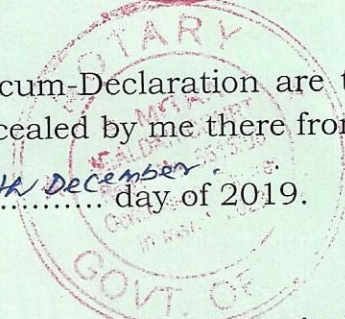 NOTARY
cum-Declaration are t
cealed by me there from
th December.
............ day of 2019.
GOVT. OF